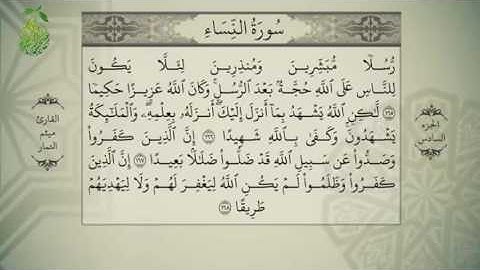 سُورَةُ النِّسَاءِ
رُّسُلًا مُّبَشِّرِينَ وَمُنذِرِينَ لِئَلَّا يَكُونَ
لِلنَّاسِ عَلَى اللَّهِ حُجَّةٌ بَعْدَ الرُّسُلِ وَكَانَ اللَّهُ عَزِيزًا حَكِيمًا
١٦٥ لَّٰكِنِ اللَّهُ يَشْهَدُ بِمَا أَنزَلَ إِلَيْكَ أَنزَلَهُ بِعِلْمِهِ وَالْمَلَائِكَةُ
يَشْهَدُونَ وَكَفَىٰ بِاللَّهِ شَهِيدًا ١٦٦ إِنَّ الَّذِينَ كَفَرُوا
وَصَدُّوا عَن سَبِيلِ اللَّهِ قَدْ ضَلُّوا ضَلَالًا بَعِيدًا ١٦٧ إِنَّ الَّذِينَ
كَفَرُوا وَظَلَمُوا لَمْ يَكُنِ اللَّهُ لِيَغْفِرَ لَهُمْ وَلَا لِيَهْدِيَهُمْ
طَرِيقًا ١٦٨
الجزء
السادس
القارئ
ميثم
التمار